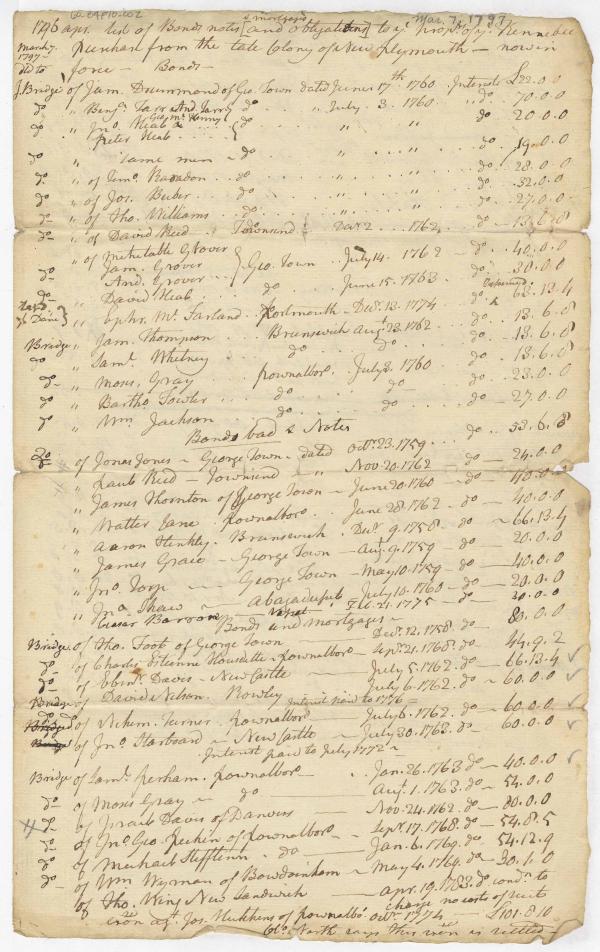 Mar. 7, 1797
& mortgages
1796 apr. list of Bonds notes and obligations to ye propers of ye Kennebec
March 7. 1797 Purchase from the late Colony of New Plymouth — now in
dd to force — Bonds —
J. Bridge of Jam. Drummond of Geo. Town dated June 17th 1760. Interest £22.0.0
do " Benja. Tarr And. Tarr do " July 3. 1760 " do. 70.0.0
do " Jno. Heal & Geo. McKenny " " 20.0.0
Peter Heal
do " same men – do " " 19.0.0
do " of Simo. do " " 28.0.0
do " of Jos. Beeber do " " 32.0.0
do " of Tho. Williams do " " 27.0.0
do " of David Reed Townsend 2 1762 do – 13.6.8
" of Mehitable Grover
do Jam. Grover Geo. Town July 14. 1762 – do. 40.0.0
do And. Grover
do " David Heal do June 15. 1763 do 30.0.0
" Ephr. McFarland Portsmouth – Decr. 13. 1774 do. & 63.13.4
Bridge " Jam. Thompson Brunswick Aug. 23. 1762 do. 13.6.8
do " Saml. Whitney do do do 13.6.8
do " Moses Gray Pownalboro. July 8. 1760 do 13.6.8
do " Bartho. Fowler do do do 23.0.0
do " Wm. Jackson do do do 27.0.0
Bonds bad & Notes
do of Jonas Jones – George Town – dated Octr. 23. 1759 do 53.6.8
" Paul Reed – Townsend " Nov. 20. 1762 do – 24.0.0
" James Thornton of George Town – June 20. 1760 – do – 40.0.0
" Walter Cane Pownalboro. June 28. 1762 – do 40.0.0
" Aaron Hinkley. Brunswick. Decr. 9. 1758. do – 66.13.4
" James Grace – George Town – Aug. 9. 1759 – do – 20.0.0
" Jno. – George Town – May 10. 1759 – do – 40.0.0
" Jno. Shaw – July 10. 1760 – do – 20.0.0
Caesar Barron Vassal Feb. 21. 1775 – 30.0.0
Bonds and mortgages –
Bridge of Tho. Foot of George Town Decr. 12. 1758. do 80.0.0
do of Charles Estienne Houdelette – Pownalboro – Sepr. 21. 1768. do 44.9.2
do of Ebenr. Davis – New Castle – July 5. 1762. do – 66.13.4
Bridge of David Nelson. Rowley July 6. 1762. do – 60.0.0
Interest paid to 1776
do of Nehem. Turner Pownalboro July 6. 1762. do – 60.0.0
Bridge of Jno. Starboard – New Castle – July 30. 1763. do – 60.0.0
Interest paid to July 1772 –
Bridge of Saml. Perham. Pownalboro – Jan. 26. 1763. do – 40.0.0
do of Moses Gray – do – Aug. 1. 1763. do – 54.0.0
do of Israel Davis of Danvers – Nov. 24. 1762. do – 80.0.0
do of Jno. Geo. of Pownalboro – Sepr. 17. 1768. do 54.8.5
do of Michael Stefflenn – do – Jan. 6. 1769. do. 54.12.9
do of Wm. Wyman of Bowdoinham – May 4. 1764. do – 30.1.0
of Tho. Wing New Sandwich – Apr. 19. 1783. do condn. to
charge no costs of suit
agt. Jos. Hutchens of Pownalbo. Octr. 1774 — £101.8.10
Colo. North says this is settled –